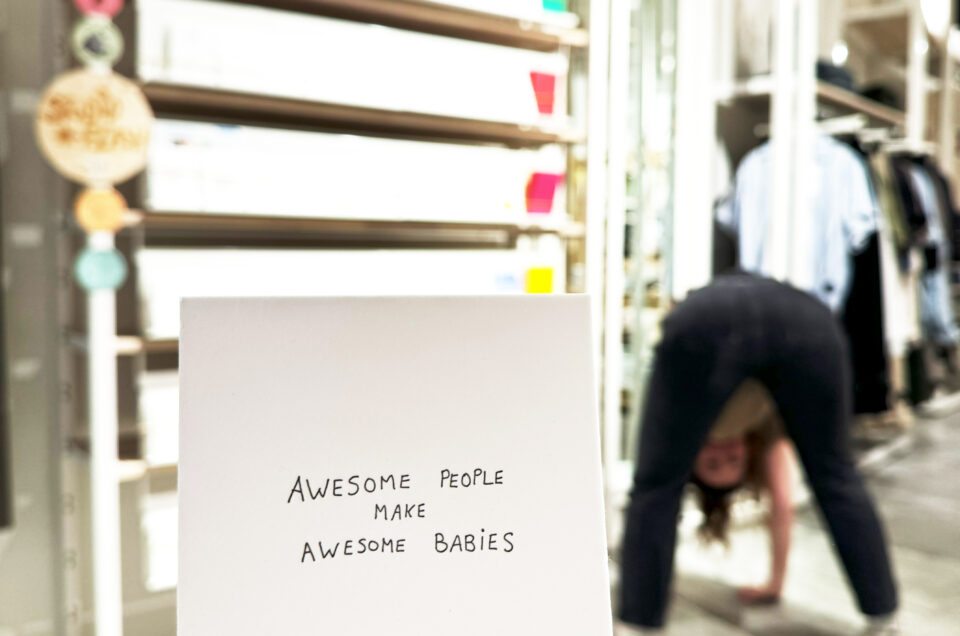 AWESOME PEOPLE
MAKE
AWESOME BABIES